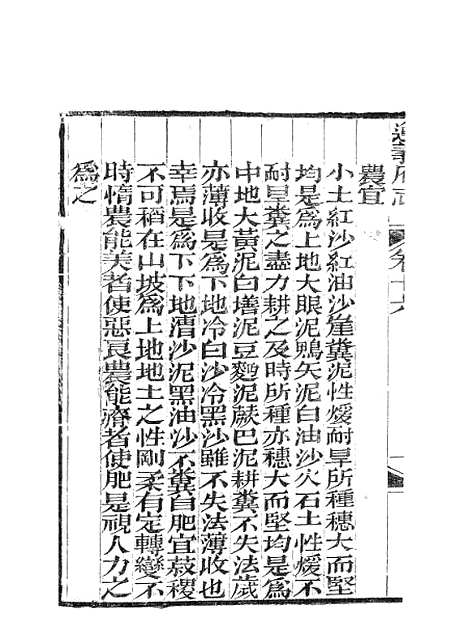 遵義府志 卷十六
農宜
小土紅沙紅油沙崖糞泥性煖耐旱所種穗大而堅
均是為上地大眼泥鴨矢泥白油沙穴石土性煖不
耐旱糞之盡力耕之及時所種亦穗大而堅均是為
中地大黃泥白墡泥豆麪泥蕨巴泥耕糞不失法歲
亦薄收是為下地冷白沙冷黑沙雖不失法薄收也
幸焉是為下下地漕沙泥黑油沙不糞自肥宜菽稷
不可稻在山坡為上地地土之性剛柔有定轉變不
時惰農能美者使惡良農能瘠者使肥是視人力之
為之